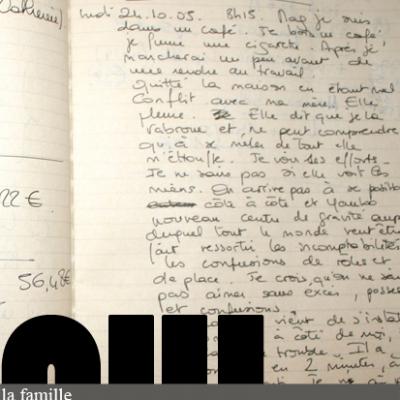 lundi 24.10.05. 8h15. Mag je suis
dans un café. Je bois un café,
je fume une cigarette. Après je
marcherai un peu avant de
me rendre au travail
quitté la maison en étant mal
Conflit avec ma mère. Elle
pleure. Elle dit que je la
rabroue et ne peut comprendre
qu'à se mêler de tout elle
m'étouffe. Je vois ses efforts.
Je ne sais pas si elle voit les
miens. On arrive pas à se positio
côte à côte et
nouveau centre de gravité
duquel tout le monde veut
fait ressortir les incompatibilités
les confusions de rôles et
de place. Je crois qu'on ne sai
pas aimer sans excès, posses
et confusions.
vient de s'instal
à côté de moi,
trouble. Il a
en 2 minutes, a
22 €
56,48€
la famille